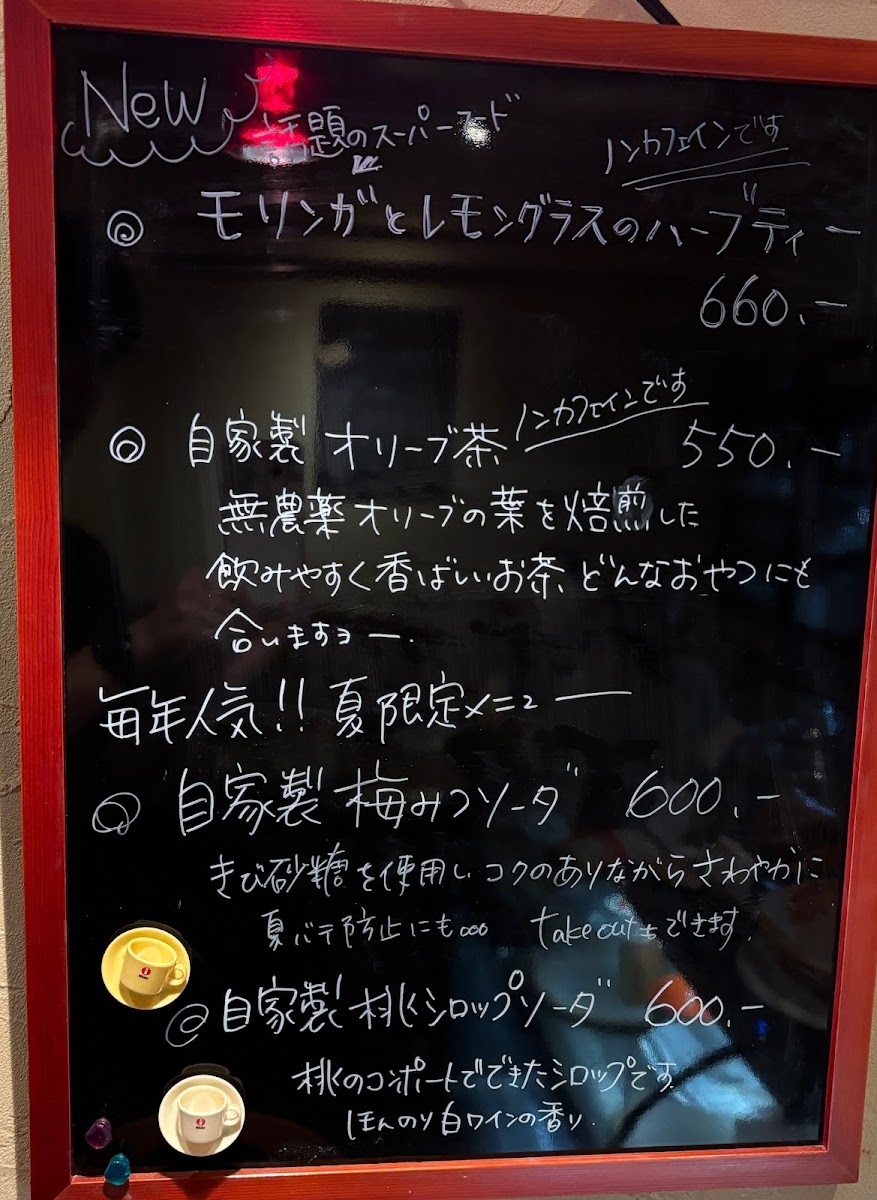 New 話題のスーパーフード
ノンカフェインです
◎ モリンガとレモングラスのハーブティー
660.-
◎ 自家製 オリーブ茶 ノンカフェインです 550.-
無農薬オリーブの葉を焙煎した
飲みやすく香ばしいお茶、どんなおやつにも
合いますョー.
毎年人気!! 夏限定メニュー
◎ 自家製 梅みつソーダ 600.-
きび砂糖を使用し、コクのありながらさわやかに
夏バテ防止にも... take outもできます.
◎ 自家製 桃シロップソーダ 600.-
桃のコンポートでできたシロップです
ほんのり白ワインの香り.